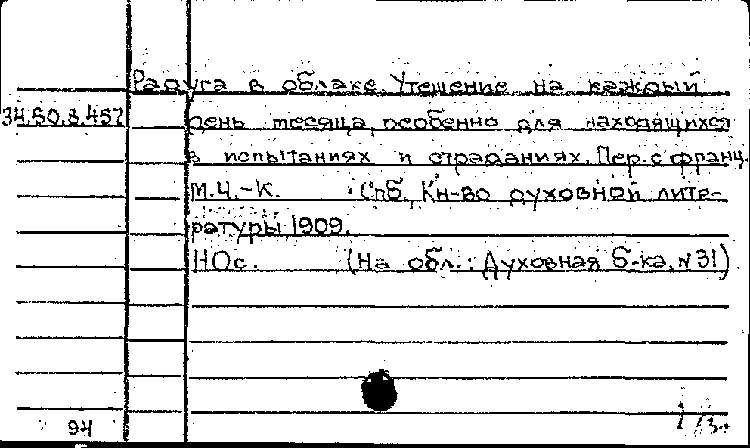 Радуга в облаке. Утешение на каждый
34.50.3.457 день месяца, особенно для находящихся
в испытаниях и страданиях. Пер. с франц.
М.Ч.-К. Спб., Кн-во духовной лите-
ратуры, 1909.
110с. (На обл.: Духовная б-ка, №31)
94